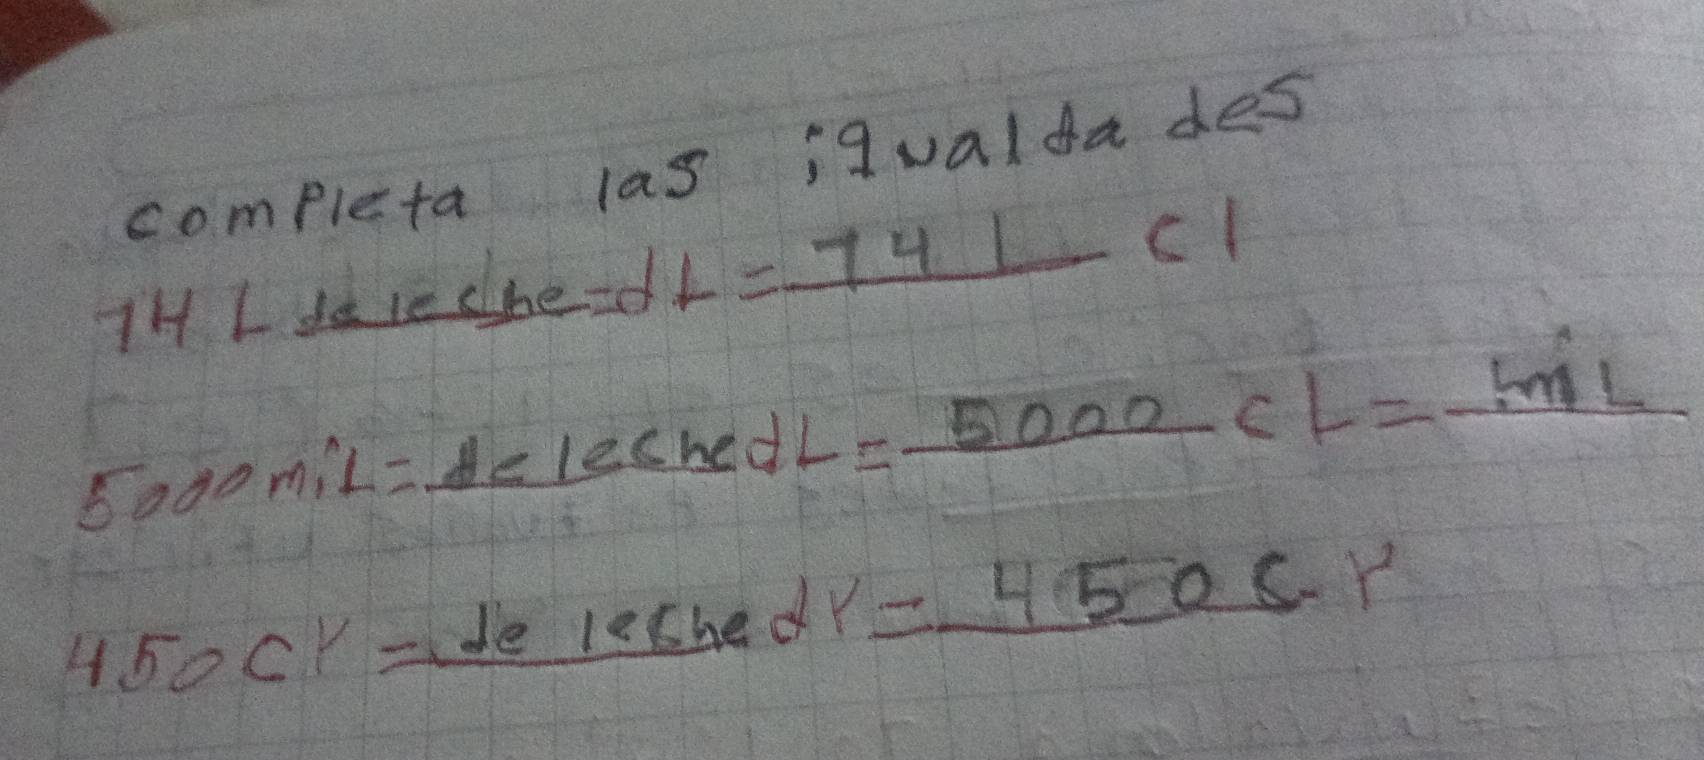 completa las igualdades
74 L de leche = dL = 74 L cl
5000 miL = de leche dL = 5000 cL = miL
450 cr = de leche dr = 450 c r